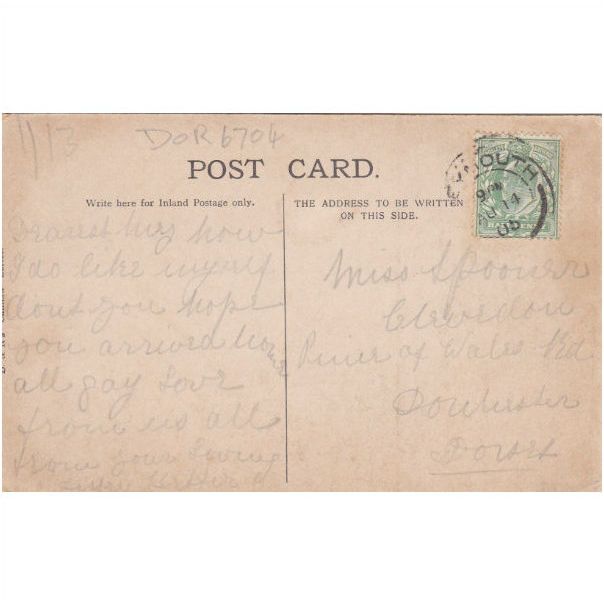 1/13
DOR 6704
POST CARD.
Write here for Inland Postage only.
THE ADDRESS TO BE WRITTEN
ON THIS SIDE.
MOUTH
9 PM
14
05
Dearest how
I do like myself
dont you hope
you arrived home
all gay Love
from us all
from your loving
Miss Spooner
Clevedon
Prince of Wales Rd
Dorchester
Dorset